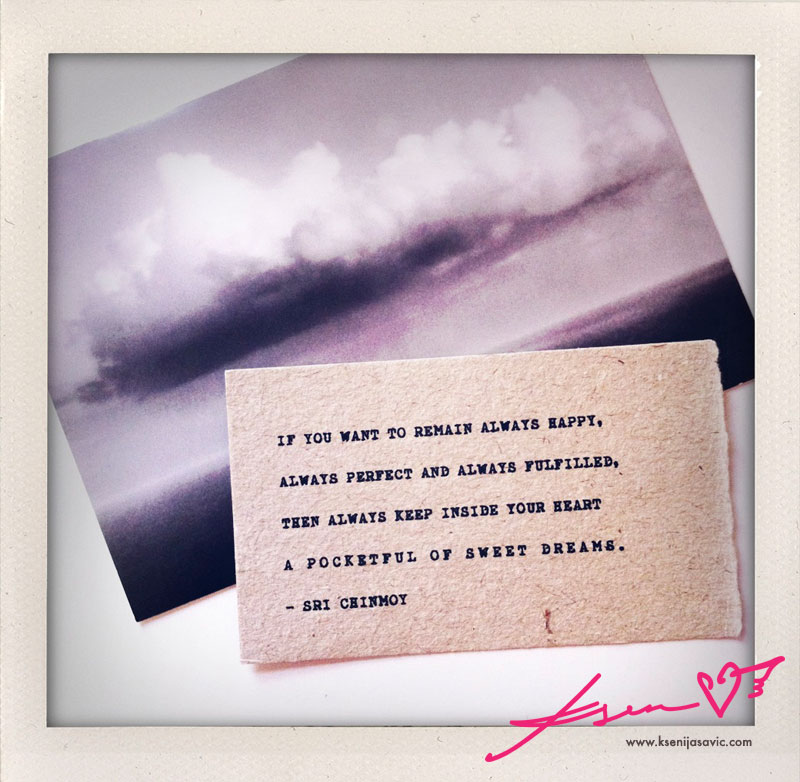 IF YOU WANT TO REMAIN ALWAYS HAPPY,
ALWAYS PERFECT AND ALWAYS FULFILLED,
THEN ALWAYS KEEP INSIDE YOUR HEART
A POCKETFUL OF SWEET DREAMS.
- SRI CHINMOY
Ksen
www.ksenijasavic.com